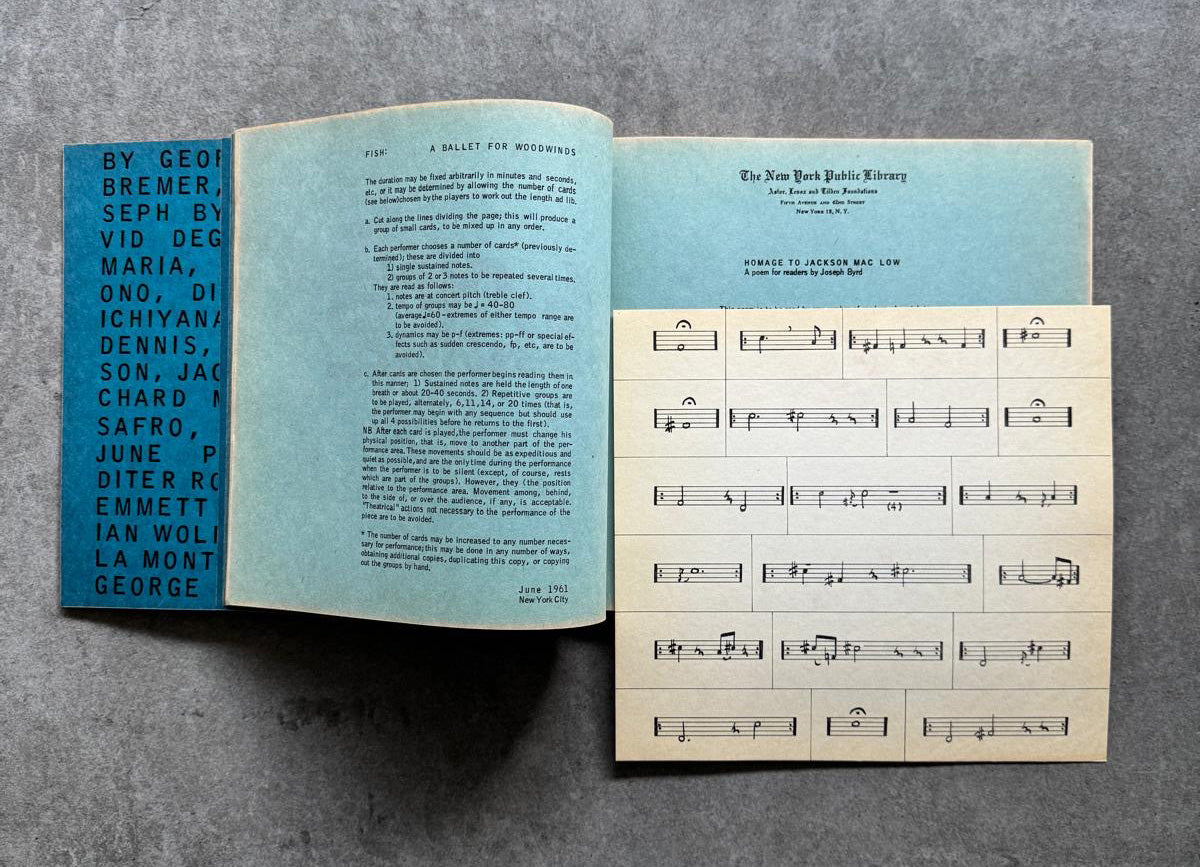 BY GEOR
BREMER,
SEPH BY
VID DEG
MARIA,
ONO, DI
ICHIYANA
DENNIS,
SON, JAC
CHARD M
SAFRO,
JUNE P
DITER RO
EMMETT
IAN WOLI
LA MONT
GEORGE
FISH: A BALLET FOR WOODWINDS
The duration may be fixed arbitrarily in minutes and seconds,
etc, or it may be determined by allowing the number of cards
(see below)chosen by the players to work out the length ad lib.
a. Cut along the lines dividing the page; this will produce a
group of small cards, to be mixed up in any order.
b. Each performer chooses a number of cards* (previously de-
termined); these are divided into
1) single sustained notes.
2) groups of 2 or 3 notes to be repeated several times.
They are read as follows:
1. notes are at concert pitch (treble clef).
2. tempo of groups may be ♩ = 40-80
(average♩=60-extremes of either tempo range are
to be avoided).
3. dynamics may be p-f (extremes: pp-ff or special ef-
fects such as sudden crescendo, fp, etc, are to be
avoided).
c. After cards are chosen the performer begins reading them in
this manner; 1) Sustained notes are held the length of one
breath or about 20-40 seconds. 2) Repetitive groups are
to be played, alternately, 6,11,14, or 20 times (that is,
the performer may begin with any sequence but should use
up all 4 possibilities before he returns to the first).
NB After each card is played,the performer must change his
physical position, that is, move to another part of the per-
formance area. These movements should be as expeditious and
quiet as possible,and are the only time during the performance
when the performer is to be silent (except, of course, rests
which are part of the groups). However, they (the position
relative to the performance area. Movement among, behind,
to the side of, or over the audience, if any, is acceptable.
"Theatrical" actions not necessary to the performance of the
piece are to be avoided.
* The number of cards may be increased to any number neces-
sary for performance;this may be done in any number of ways,
obtaining additional copies, duplicating this copy, or copying
out the groups by hand.
June 1961
New York City
The New York Public Library
Astor, Lenox and Tilden Foundations
Fifth Avenue and 42nd Street
New York 18, N. Y.
HOMAGE TO JACKSON MAC LOW
A poem for readers by Joseph Byrd
(4)